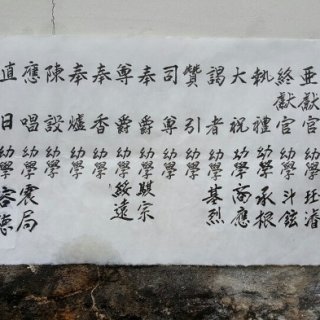 亞獻官 幼學
終獻官 幼學 斗鉉
執禮 幼學 承根
大祝 幼學 商應
謁者 幼學 基烈
贊引 幼學
司尊 幼學
奉爵 幼學 騏宗
奠爵 幼學 綏遠
奉香 幼學
奉爐 幼學
陳設 幼學
應唱 幼學 震局
直日 幼學 容德